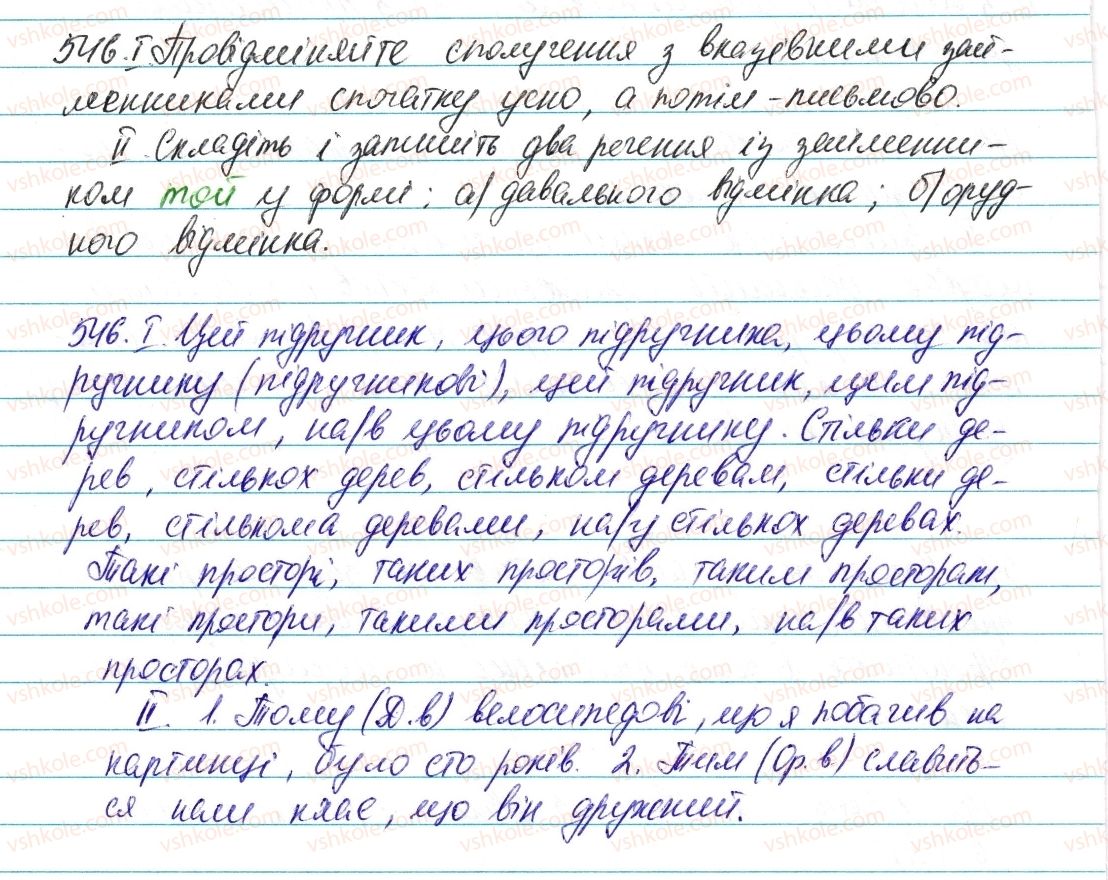 546. I Провідміняйте сполучення з вказівними зай-
менниками спочатку усно, а потім - письмово.
II. Складіть і запишіть два речення із займенни-
ком той у формі: а) давального відмінка; б) оруд-
ного відмінка.
546. I. Цей підручник, цього підручника, цьому під-
ручнику (підручникові), цей підручник, цим під-
ручником, на/в цьому підручнику. Стільки де-
рев, стількох дерев, стільком деревам, стільки де-
рев, стількома деревами, на/у стількох деревах.
Такі простори, таких просторів, таким просторам,
такі простори, такими просторами, на/в таких
просторах.
II. 1. Тому (Д.в) велосипедові, що я побачив на
картинці, було сто років. 2. Тим (Ор.в) славить-
ся наш клас, що він дружний.